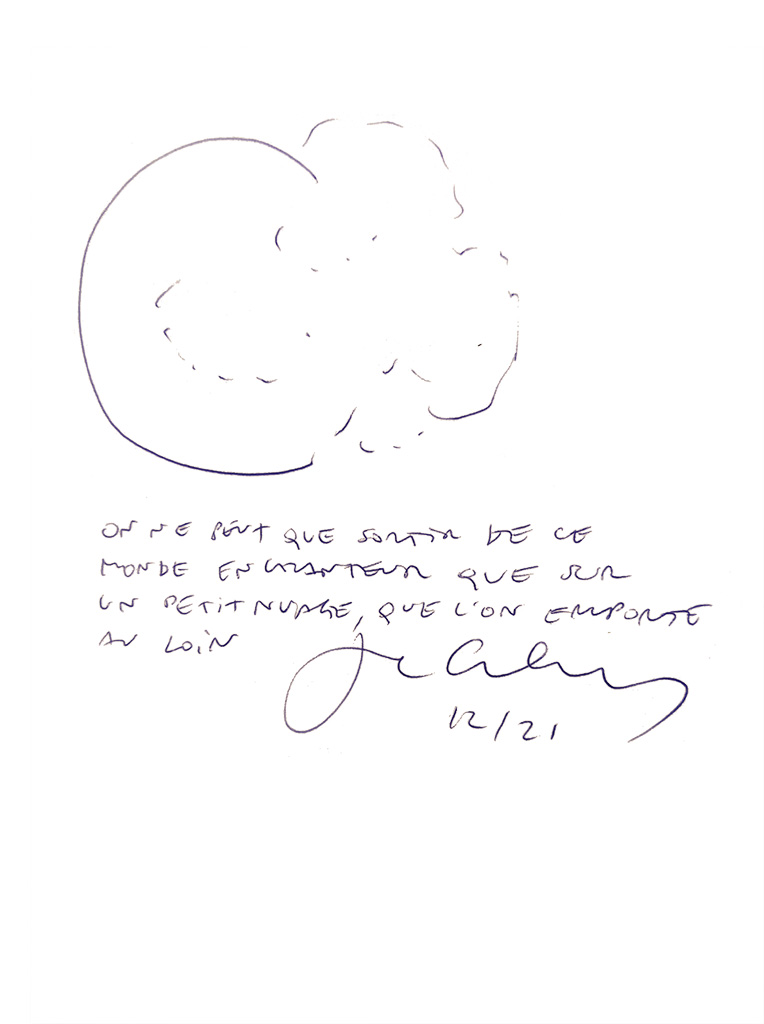 ON NE PEUT QUE SORTIR DE CE
MONDE ENCHANTEUR QUE SUR
UN PETIT NUAGE, QUE L'ON EMPORTE
AU LOIN
12/21